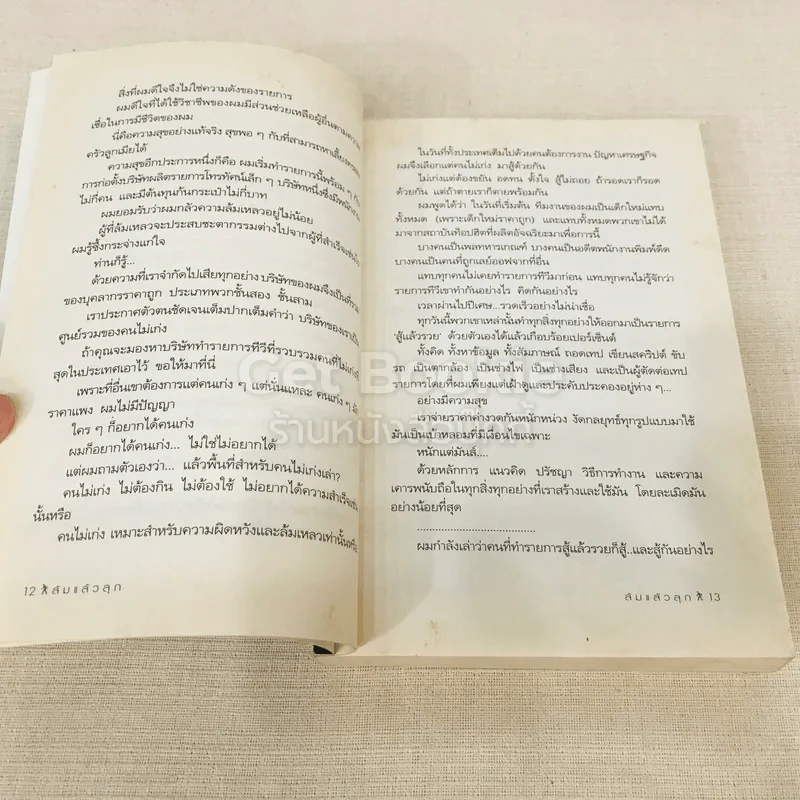 สิ่งที่ผมดีใจจึงไม่ใช่ความดังของรายการ
ผมดีใจที่ได้ใช้วิชาชีพของผมมีส่วนช่วยเหลือผู้อื่นตามความ
เชื่อในการมีชีวิตของผม
นี่คือความสุขอย่างแท้จริง สุขพอ ๆ กับที่สามารถหาเลี้ยง
ครัวลูกเมียได้
ความสุขอีกประการหนึ่งก็คือ ผมเริ่มทำรายการนี้พร้อม ๆ กับ
การก่อตั้งบริษัทผลิตรายการโทรทัศน์เล็ก ๆ บริษัทหนึ่งซึ่งมีพนักงาน
ไม่กี่คน และมีต้นทุนก้นกระเป๋าไม่กี่บาท
ผมยอมรับว่าผมกลัวความล้มเหลวอยู่ไม่น้อย
ผู้ที่ล้มเหลวจะประสบชะตากรรมต่างไปจากผู้ที่สำเร็จเช่นไร
ผมรู้ซึ้งกระจ่างแก่ใจ
ท่านก็รู้...
ด้วยความที่เราจำกัดไปเสียทุกอย่าง บริษัทของผมจึงเป็นที่รวม
ของบุคลากรราคาถูก ประเภทพวกชั้นสอง ชั้นสาม
เราประกาศตัวตนชัดเจนเต็มปากเต็มคำว่า บริษัทของเราเป็น
ศูนย์รวมของคนไม่เก่ง
ถ้าคุณจะมองหาบริษัททำรายการทีวีที่รวบรวมคนที่ไม่เก่งที่
สุดในประเทศเอาไว้ ขอให้มาที่นี่
เพราะที่อื่นเขาต้องการแต่คนเก่ง ๆ แต่นั่นแหละ คนเก่ง ๆ
ราคาแพง ผมไม่มีปัญญา
ใคร ๆ ก็อยากได้คนเก่ง
ผมก็อยากได้คนเก่ง... ไม่ใช่ไม่อยากได้
แต่ผมถามตัวเองว่า... แล้วพื้นที่สำหรับคนไม่เก่งเล่า?
คนไม่เก่ง ไม่ต้องกิน ไม่ต้องใช้ ไม่อยากได้ความสำเร็จเช่น
นั้นหรือ
คนไม่เก่ง เหมาะสำหรับความผิดหวังและล้มเหลวเท่านั้นหรือ
12 ล้มแล้วลุก
ในวันที่ทั้งประเทศเต็มไปด้วยคนต้องการงาน ปัญหาเศรษฐกิจ
ผมจึงเลือกแต่คนไม่เก่ง มาสู้ด้วยกัน
ไม่เก่งแต่ต้องขยัน อดทน ตั้งใจ สู้ไม่ถอย ถ้ารอดเราก็รอด
ด้วยกัน แต่ถ้าตายเราก็ตายพร้อมกัน
ผมพูดได้ว่า ในวันที่เริ่มต้น ทีมงานของผมเป็นเด็กใหม่แทบ
ทั้งหมด (เพราะเด็กใหม่ราคาถูก) และแทบทั้งหมดพวกเขาไม่ได้
มาจากสถาบันที่อปสิตที่ผลิตอัจฉริยะมาเพื่อการนี้
บางคนเป็นพลทหารเกณฑ์ บางคนเป็นอดีตพนักงานพิมพ์ดีด
บางคนเป็นคนที่ถูกเลย์ออฟจากที่อื่น
แทบทุกคนไม่เคยทำรายการทีวีมาก่อน แทบทุกคนไม่รู้จักว่า
รายการทีวีเขาทำกันอย่างไร คิดกันอย่างไร
เวลาผ่านไปปีเศษ...รวดเร็วอย่างไม่น่าเชื่อ
ทุกวันนี้พวกเขาเหล่านั้นทำทุกสิ่งทุกอย่างให้ออกมาเป็นรายการ
'สู้แล้วรวย' ด้วยตัวเองได้แล้วเกือบร้อยเปอร์เซ็นต์
ทั้งคิด ทั้งหาข้อมูล ทั้งสัมภาษณ์ ถอดเทป เขียนสคริปต์ ขับ
รถ เป็นตากล้อง เป็นช่างไฟ เป็นช่างเสียง และเป็นผู้ตัดต่อเทป
รายการโดยที่ผมเพียงแต่เฝ้าดูและประคับประคองอยู่ห่าง ๆ...
อย่างมีความสุข
เราจ่ายราคาค่างวดกันหนักหน่วง งัดกลยุทธ์ทุกรูปแบบมาใช้
มันเป็นเบ้าหลอมที่มีเงื่อนไขเฉพาะ
หนักแต่มันส์....
ด้วยหลักการ แนวคิด ปรัชญา วิธีการทำงาน และความ
เคารพนับถือในทุกสิ่งทุกอย่างที่เราสร้างและใช้มัน โดยละเมิดมัน
อย่างน้อยที่สุด
....................................
ผมกำลังเล่าว่าคนที่ทำรายการสู้แล้วรวยก็สู้..และสู้กันอย่างไร
ล้มแล้วลุก 13